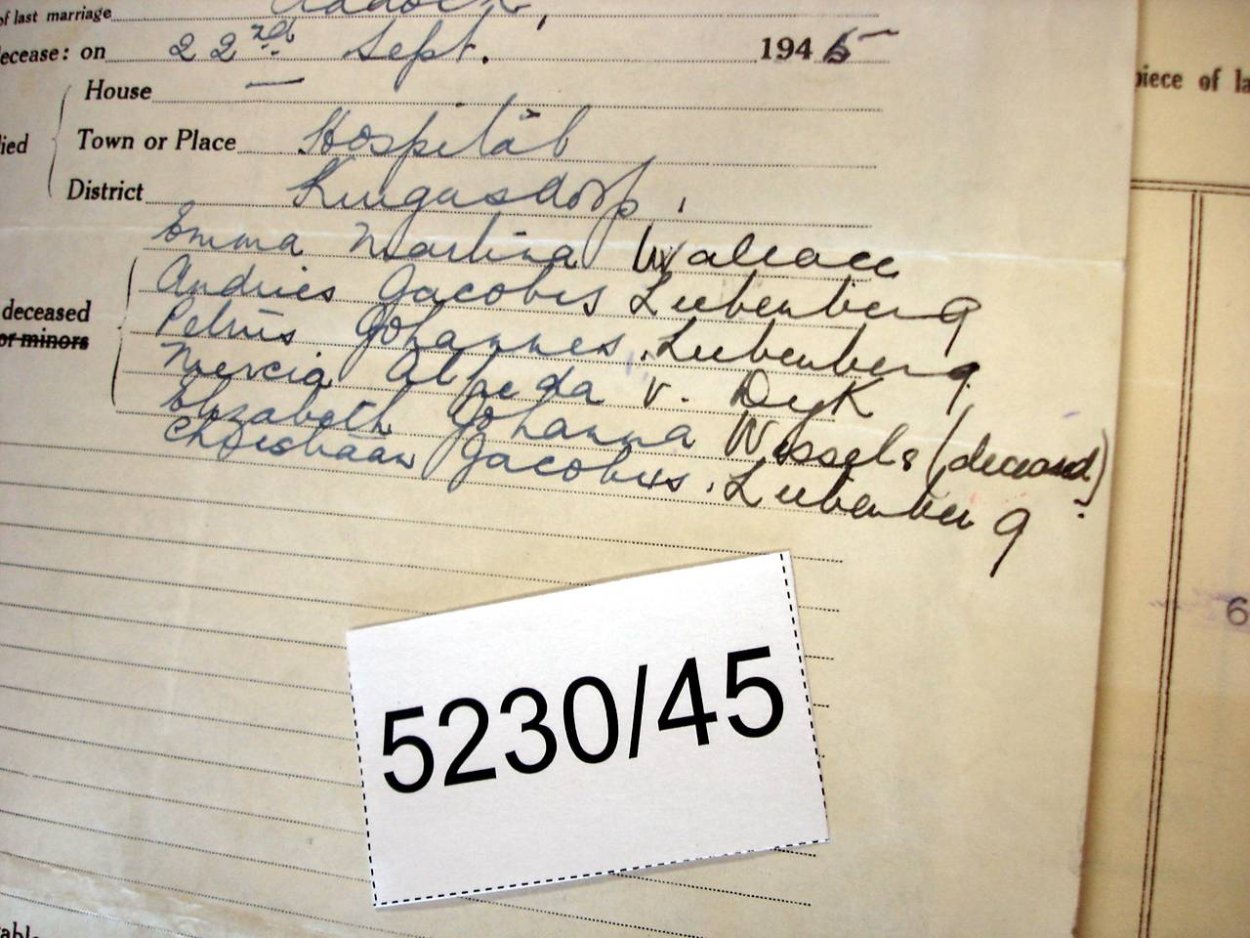 of last marriage
ecease: on 22nd Sept. 1945
House —
ied Town or Place Hospital
District Krugersdorp.
Emma Martina Wallace
Andries Jacobus Liebenberg
deceased Petrus Johannes Liebenberg
or minors Mercia Alheda v. Dyk
Elizabeth Johanna Wessels (deceased)
Christiaan Jacobus Liebenberg
piece of la
6
5230/45
able